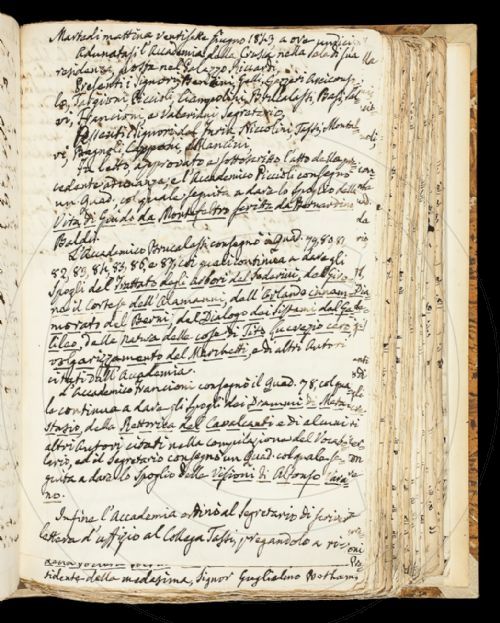 Martedì mattina ventisette Giugno 1843 a ore undici
Adunatasi l'Accademia della Crusca nella sala di sua
residenza posta nel Palazzo Riccardi.
Presenti i Signori Gazzeri Arciconso-
lo, Targioni Becchi, Ciampolini, Brucalassi,
vi, Francioni, e Valeriani Segretario.
Assenti i Signori Del Furia, Niccolini, Tassi, Montal-
vi, Bagnoli, Capponi, e Mancini.
Fu letto, approvato e sottoscritto l'atto della pre-
cedente adunanza, e l'Accademico Piccioli consegnò
un Quad. col quale seguita a dare lo spoglio della
Vita di Guido da Montefeltro scritta da Bernardino
Baldi.
L'Accademico Brucalassi consegnò i Quad. 79, 80, 81,
82, 83, 84, 85, 86, e 87, coi quali continua a dare gli
Spogli del Trattato degli Arbori del Soderini, del Giro-
ne il Cortese dell'Alamanni, dell'Orlando innam-
morato del Berni, del Dialogo dei Sistemi del Gali-
leo, della natura delle cose di Tito Lucrezio Caro
volgarizzamento del Marchetti, e di altri Autori
citati dall'Accademia.
L'Accademico Francioni consegnò il Quad. 78, col qua-
le continua a dare gli Spogli dei Drammi di Meta-
stasio, della Rettorica del Cavalcanti e di alcuni
altri Autori citati nella compilazione del Vocabo-
lario, ed il Segretario consegnò un Quad. col quale se-
guita a dare lo Spoglio delle Visioni di Alfonso Vara-
no.
Infine l'Accademia ordinò al Segretario di scriver
lettera d'uffizio al Collega Tassi, pregandolo a
sidente della medesima, Signor Guglielmo